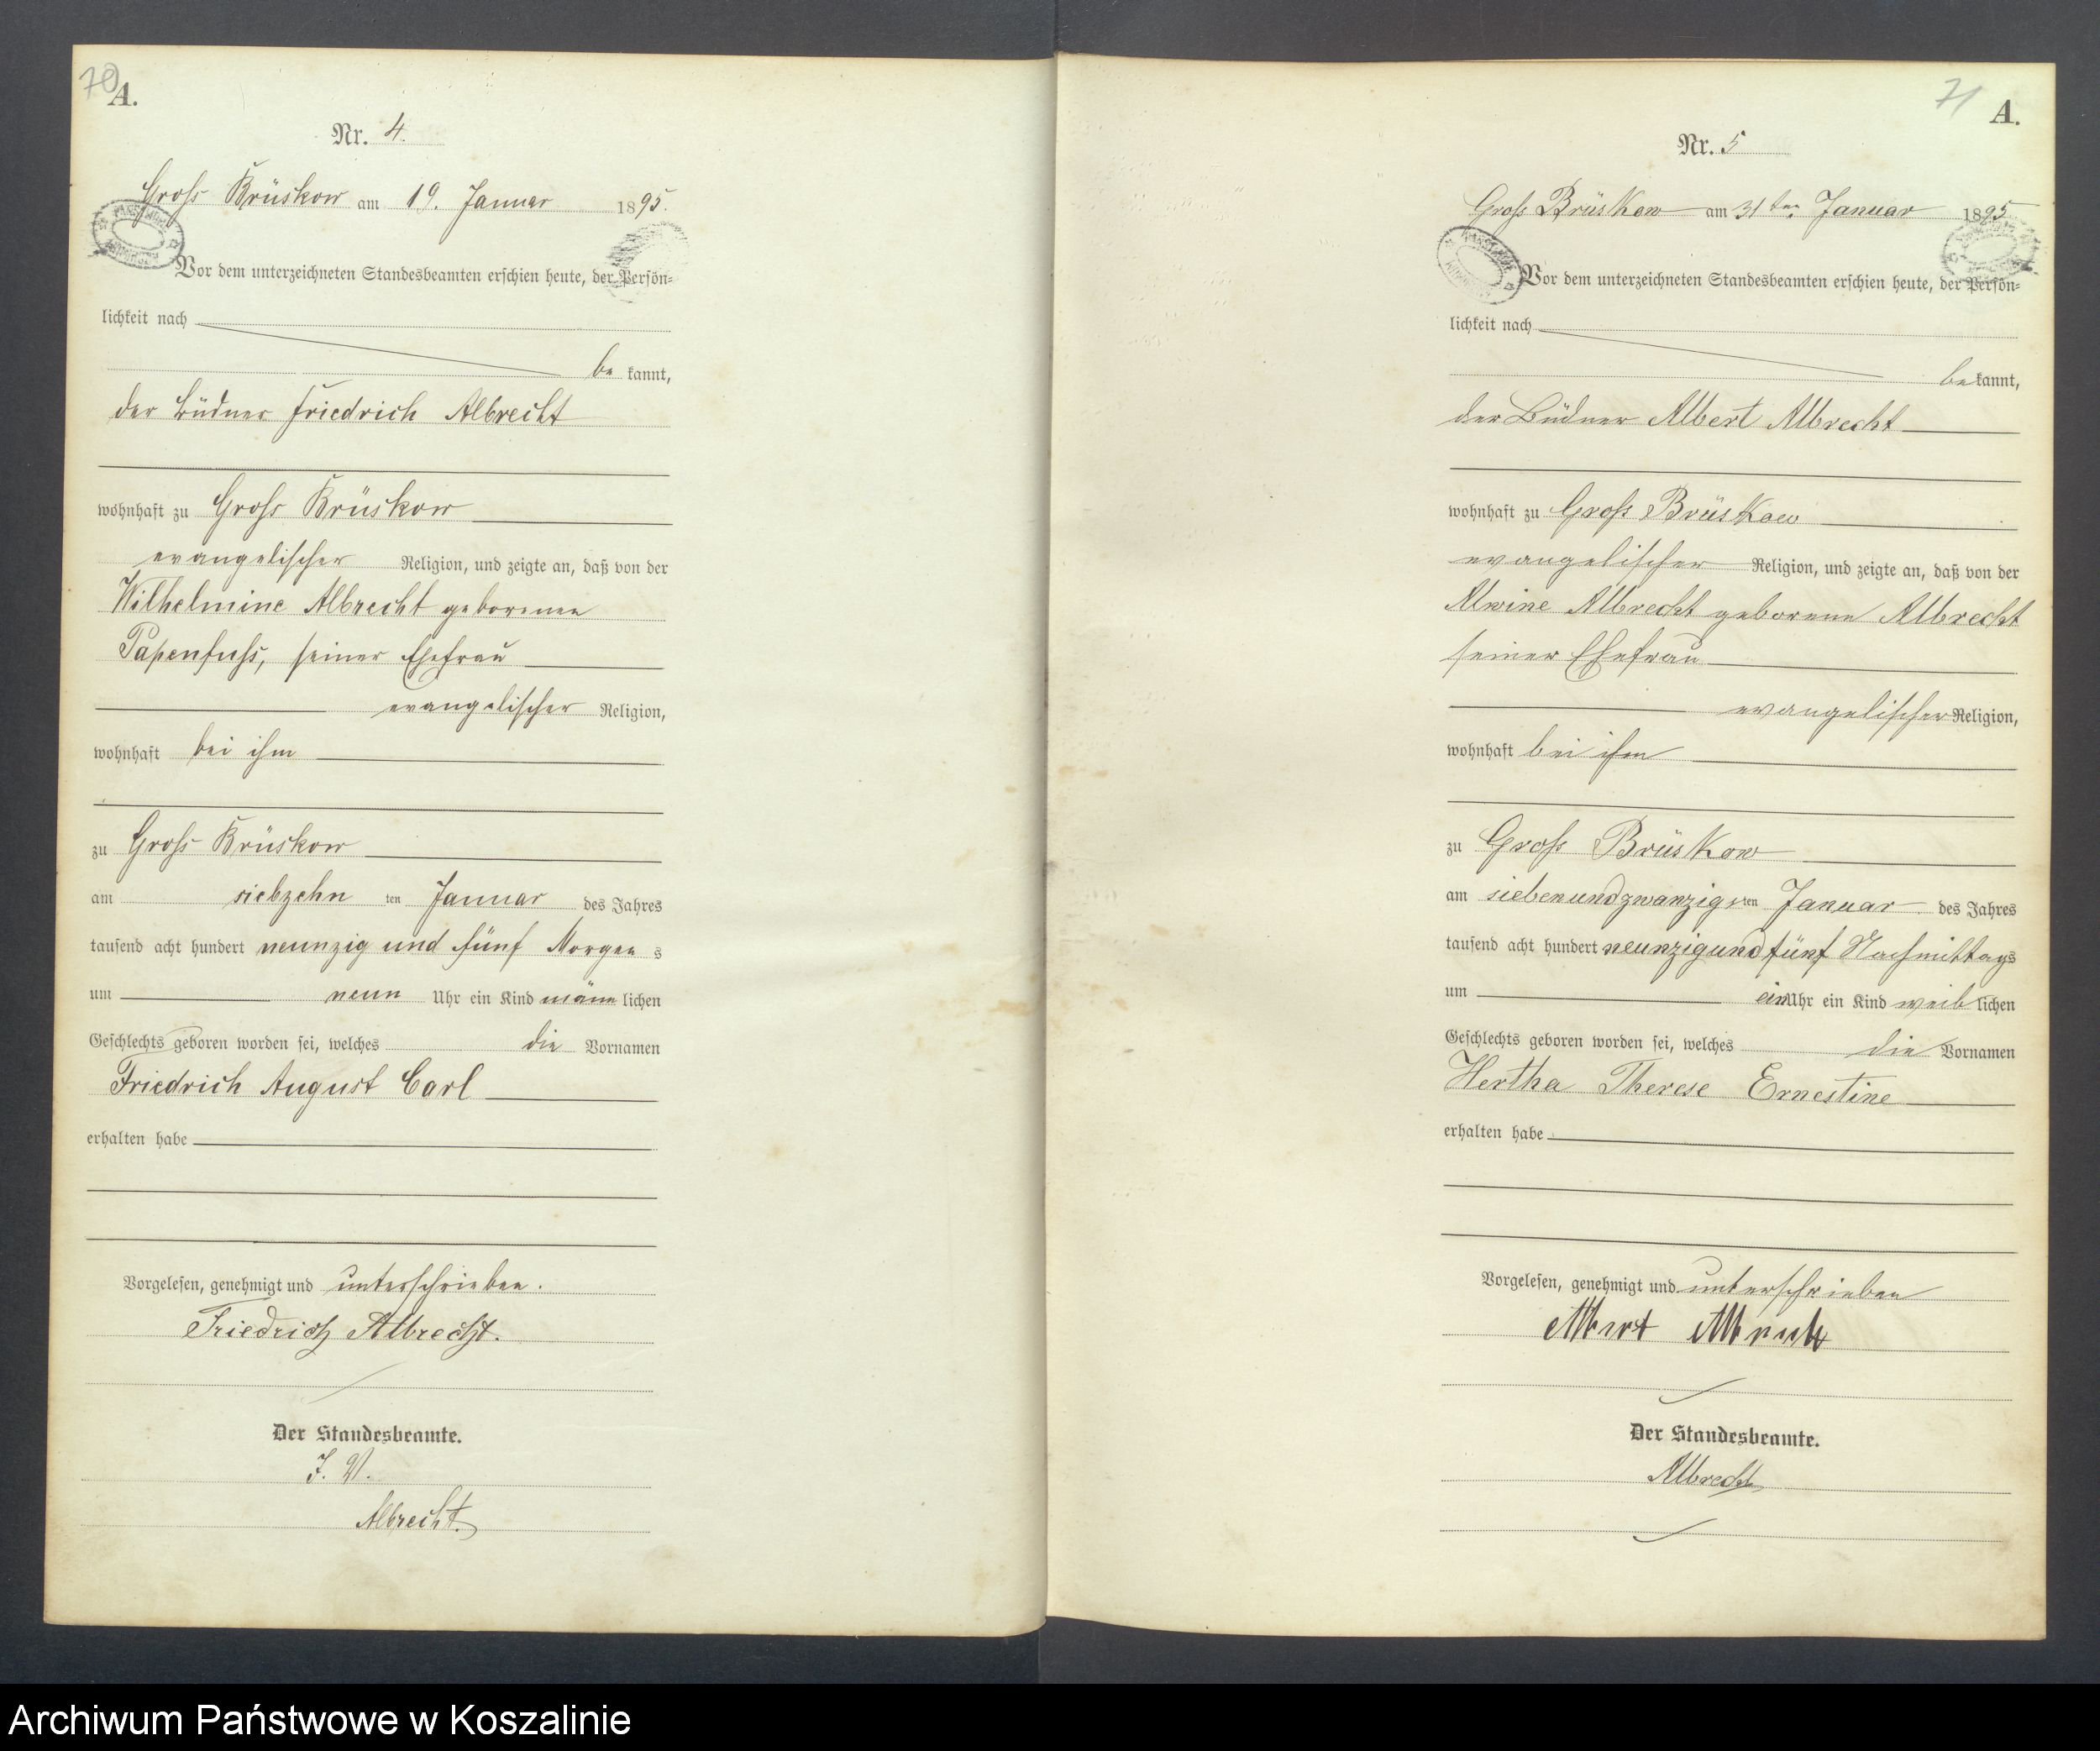 70
A.
Nr. 4.
Gross Brüskow am 19. Januar 1895.
Vor dem unterzeichneten Standesbeamten erschien heute, der Persön-
lichkeit nach
be kannt,
der Büdner Friedrich Albrecht
wohnhaft zu Gross Brüskow
evangelischer Religion, und zeigte an, daß von der
Wilhelmine Albrecht geborenen
Papenfuss, seiner Ehefrau
evangelischer Religion,
wohnhaft bei ihm
zu Gross Brüskow
am siebzehn ten Januar des Jahres
tausend acht hundert neunzig und fünf Morgen s
um neun Uhr ein Kind männ lichen
Geschlechts geboren worden sei, welches die Vornamen
Friedrich August Carl
erhalten habe
Vorgelesen, genehmigt und unterschrieben.
Friedrich Albrecht.
Der Standesbeamte.
J. V.
Albrecht.
71
A.
Nr. 5
Gross Brüskow am 31ten Januar 1895
Vor dem unterzeichneten Standesbeamten erschien heute, der Persön-
lichkeit nach
be kannt,
der Büdner Albert Albrecht
wohnhaft zu Gross Brüskow
evangelischer Religion, und zeigte an, daß von der
Alwine Albrecht geborene Albrecht
seiner Ehefrau
evangelischer Religion,
wohnhaft bei ihm
zu Gross Brüskow
am siebenundzwanzigsten Januar des Jahres
tausend acht hundert neunzigundfünf Nachmittags
um ein Uhr ein Kind weib lichen
Geschlechts geboren worden sei, welches die Vornamen
Hertha Therese Ernestine
erhalten habe
Vorgelesen, genehmigt und unterschrieben
Albert Albrecht
Der Standesbeamte.
Albrecht
Archiwum Państwowe w Koszalinie